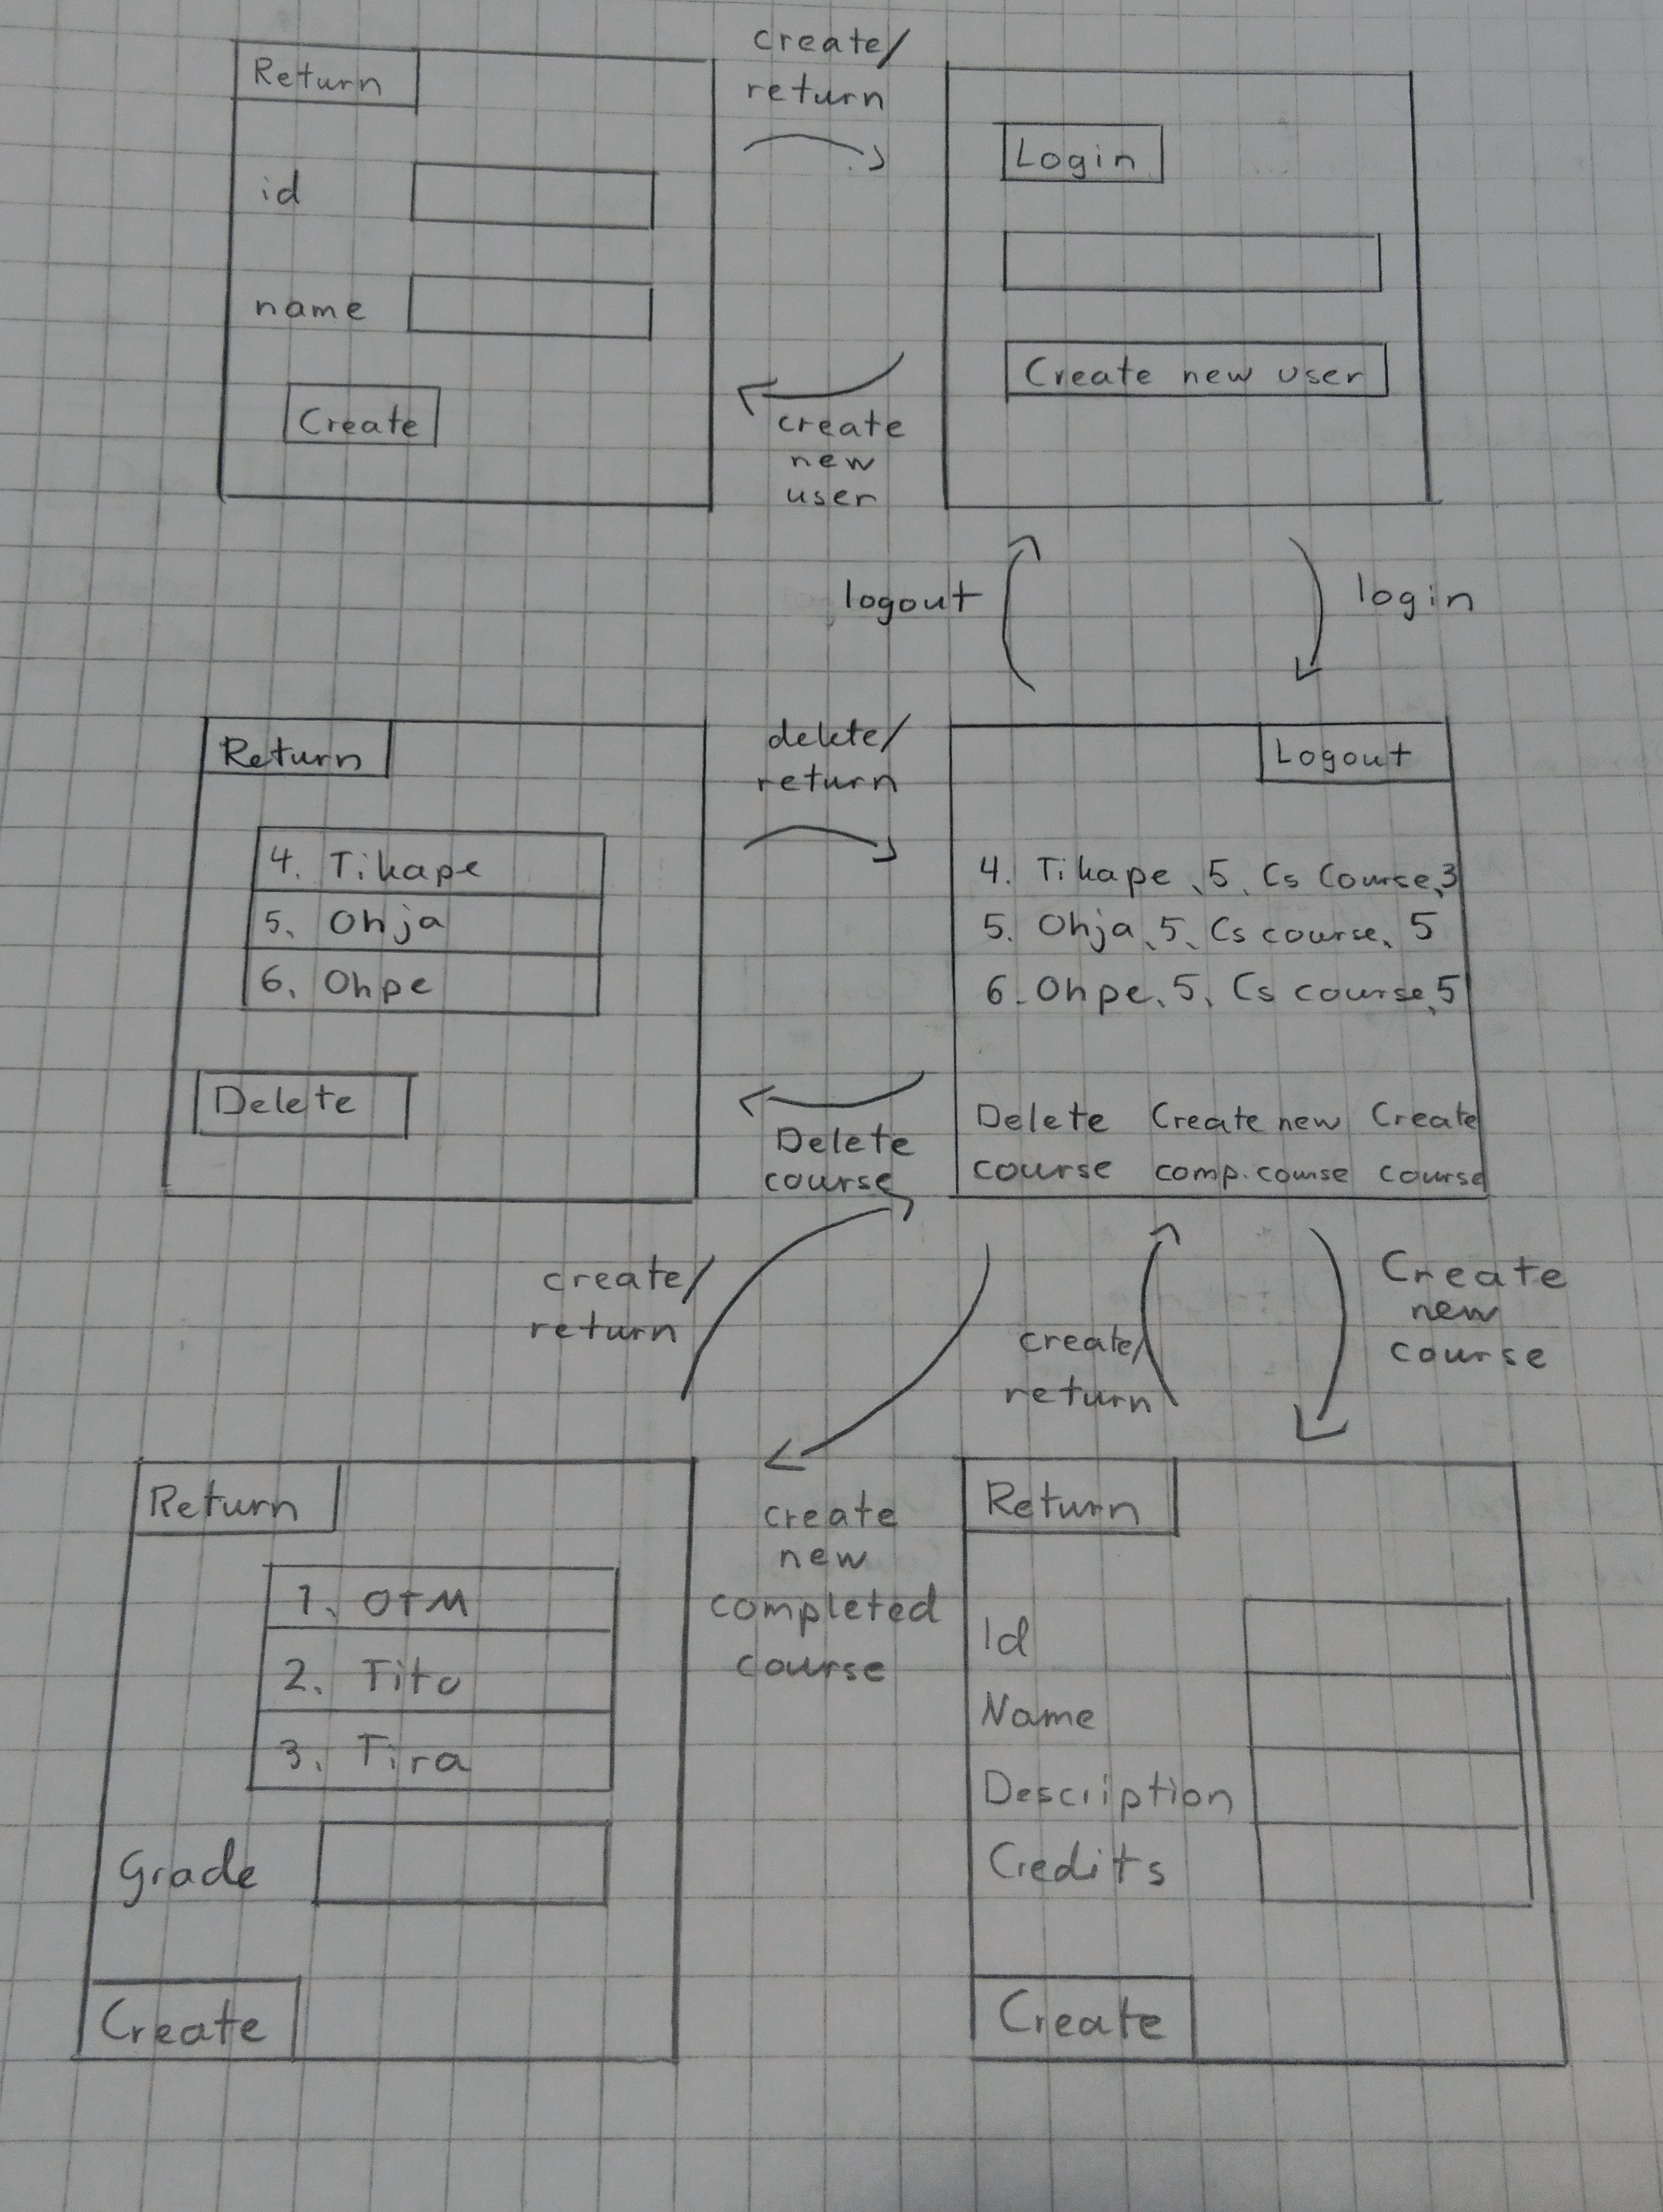 Return
id
name
Create
create/
return
create
new
user
Login
Create new user
logout
login
Return
4. Tikape
5. Ohja
6. Ohpe
Delete
delete/
return
Delete
course
Logout
4. Tikape, 5, Cs Course, 3
5. Ohja, 5, Cs course, 5
6. Ohpe, 5, Cs course, 5
Delete Create new Create
course comp. course course
create/
return
create/
return
Create
new
course
Return
1. OTM
2. Tito
3. Tira
Grade
Create
create
new
completed
course
Return
Id
Name
Description
Credits
Create